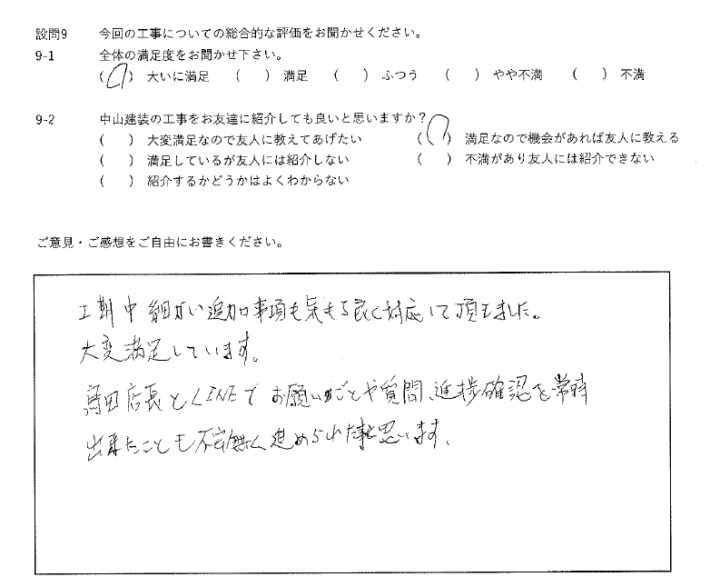 設問9　今回の工事についての総合的な評価をお聞かせください。
9-1　全体の満足度をお聞かせ下さい。
(　) 大いに満足　(　) 満足　(　) ふつう　(　) やや不満　(　) 不満
9-2　中山建装の工事をお友達に紹介しても良いと思いますか？
(　) 大変満足なので友人に教えてあげたい　(　) 満足なので機会があれば友人に教える
(　) 満足しているが友人には紹介しない　(　) 不満があり友人には紹介できない
(　) 紹介するかどうかはよくわからない
ご意見・ご感想をご自由にお書きください。
工期中細かい追加事項も気もち良く対応して頂きました。
大変満足しています。
店長とLINEでお願いごとや質問、進捗確認を常時
出来たことも不安無く進められた事と思います。